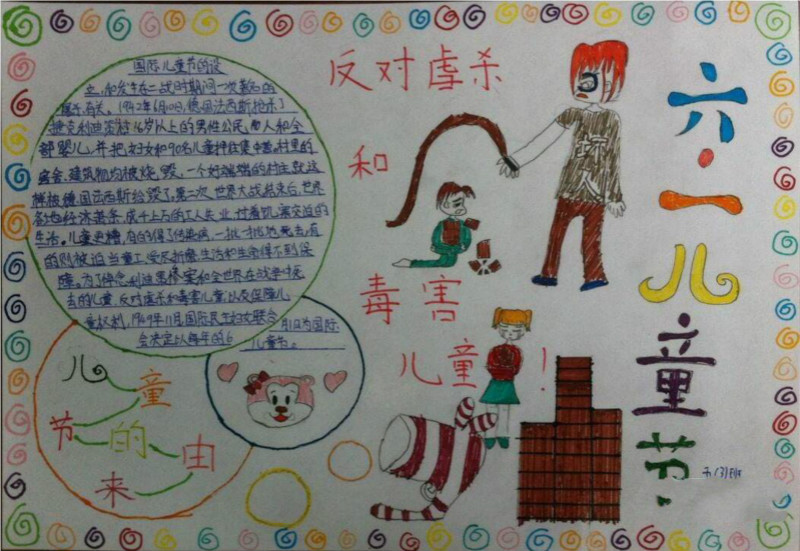 国际儿童节的设
立，和发生在二战时期间一次著名的
屠杀有关。1942年6月10日，德国法西斯枪杀了
捷克利迪策村16岁以上的男性公民，140人和全
部婴儿，并把妇女和90名儿童押往集中营。村里的
房舍、建筑物均被烧毁，一个好端端的村庄就这
样被德国法西斯给毁了。第二次世界大战结束后，世界
各地经济萧条，成千上万的工人失业，过着饥寒交迫的
生活。儿童更糟，有的得了传染病，一批一批地死去，有
的则被迫当童工，受尽折磨，生活和生命得不到保
障。为了悼念利迪策惨案和全世界在战争中死
去的儿童，反对虐杀和毒害儿童，以及保障儿
童权利，1949年11月国际民主妇女联合
会决定以每年的6
月1日为国际
儿童节。
儿童
节的由
来
反对虐杀
和
毒害
儿童！
坏人
六·一儿童节